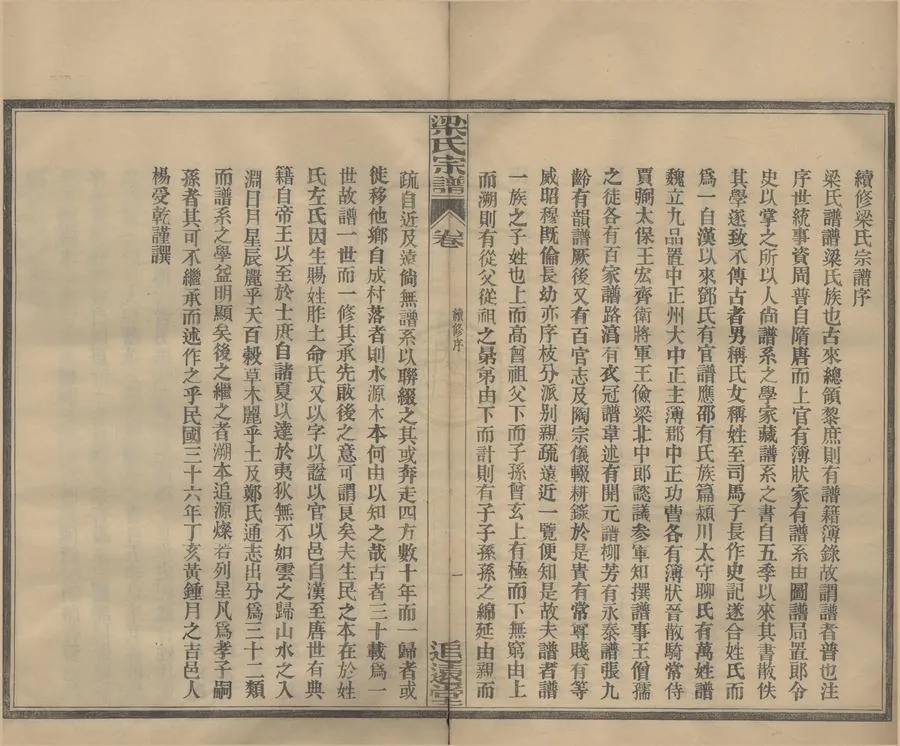 續修梁氏宗譜序
梁氏譜譜梁氏族也古來總領黎庶則有譜籍簿錄故謂譜者普也注
序世統事資周普自隋唐而上官有簿狀家有譜系由圖譜局置郎令
史以掌之所以人尚譜系之學家藏譜系之書自五季以來其書散佚
其學遂致不傳古者男稱氏女稱姓至司馬子長作史記遂合姓氏而
爲一自漢以來鄧氏有官譜應邵有氏族篇潁川太守聊氏有萬姓譜
魏立九品置中正州大中正主簿郡中正功曹各有簿狀晉散騎常侍
賈弼太保王宏齊衛將軍王儉梁北中郎諮議參軍知撰譜事王僧孺
之徒各有百家譜路淳有衣冠譜韋述有開元譜柳芳有永泰譜張九
齡有韻譜厥後又有百官志及陶宗儀輟耕錄於是貴有常尊賤有等
威昭穆既倫長幼亦序枝分派別親疏遠近一覽便知是故夫譜者譜
一族之子姓也上而高曾祖父下而子孫曾玄上有極而下無窮由上
而溯則有從父從祖之昴弟由下而計則有子子孫孫之綿延由親而
梁氏宗譜
卷
續修序
一
追遠堂
疏自近及遠倘無譜系以聯綴之其或奔走四方數十年而一歸者或
徙移他鄉自成村落者則水源木本何由以知之哉古者三十載爲一
世故譜一世而一修其承先啟後之意可謂良矣夫生民之本在於姓
氏左氏因生賜姓胙土命氏又以字以謚以官以邑自漢至唐世有典
籍自帝王以至於士庶自諸夏以達於夷狄無不如雲之歸山水之入
淵日月星辰麗乎天百穀草木麗乎土及鄭氏通志出分爲三十二類
而譜系之學益明顯矣後之繼之者溯本追源燦若列星凡爲孝子嗣
孫者其可不繼承而述作之乎民國三十六年丁亥黃鍾月之吉邑人
楊受乾謹譔